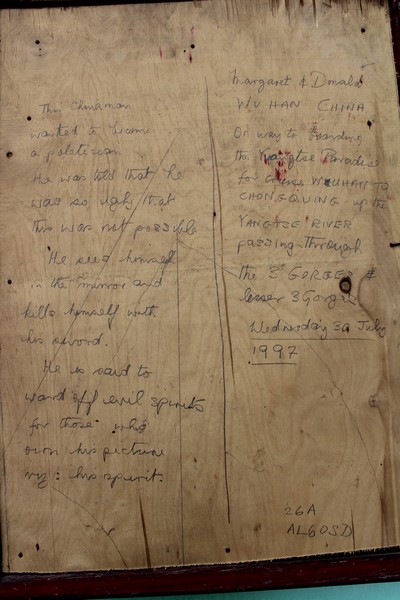 This Chinaman
wanted to become
a politician.
He was told that he
was so ugly that
this was not possible
He sees himself
in the mirror and
kills himself with
his sword.
He is said to
ward off evil spirits
for those who
own his picture
viz: his spirit.
Margaret & Donald
WUHAN CHINA
On way to Boarding
the Yangtse Paradise
for cruise WUHAN TO
CHONGQUING up the
YANGTSE RIVER
passing through
the 3 GORGES &
lesser 3 Gorges
Wednesday 30 July
1997
26A
ALGOSD